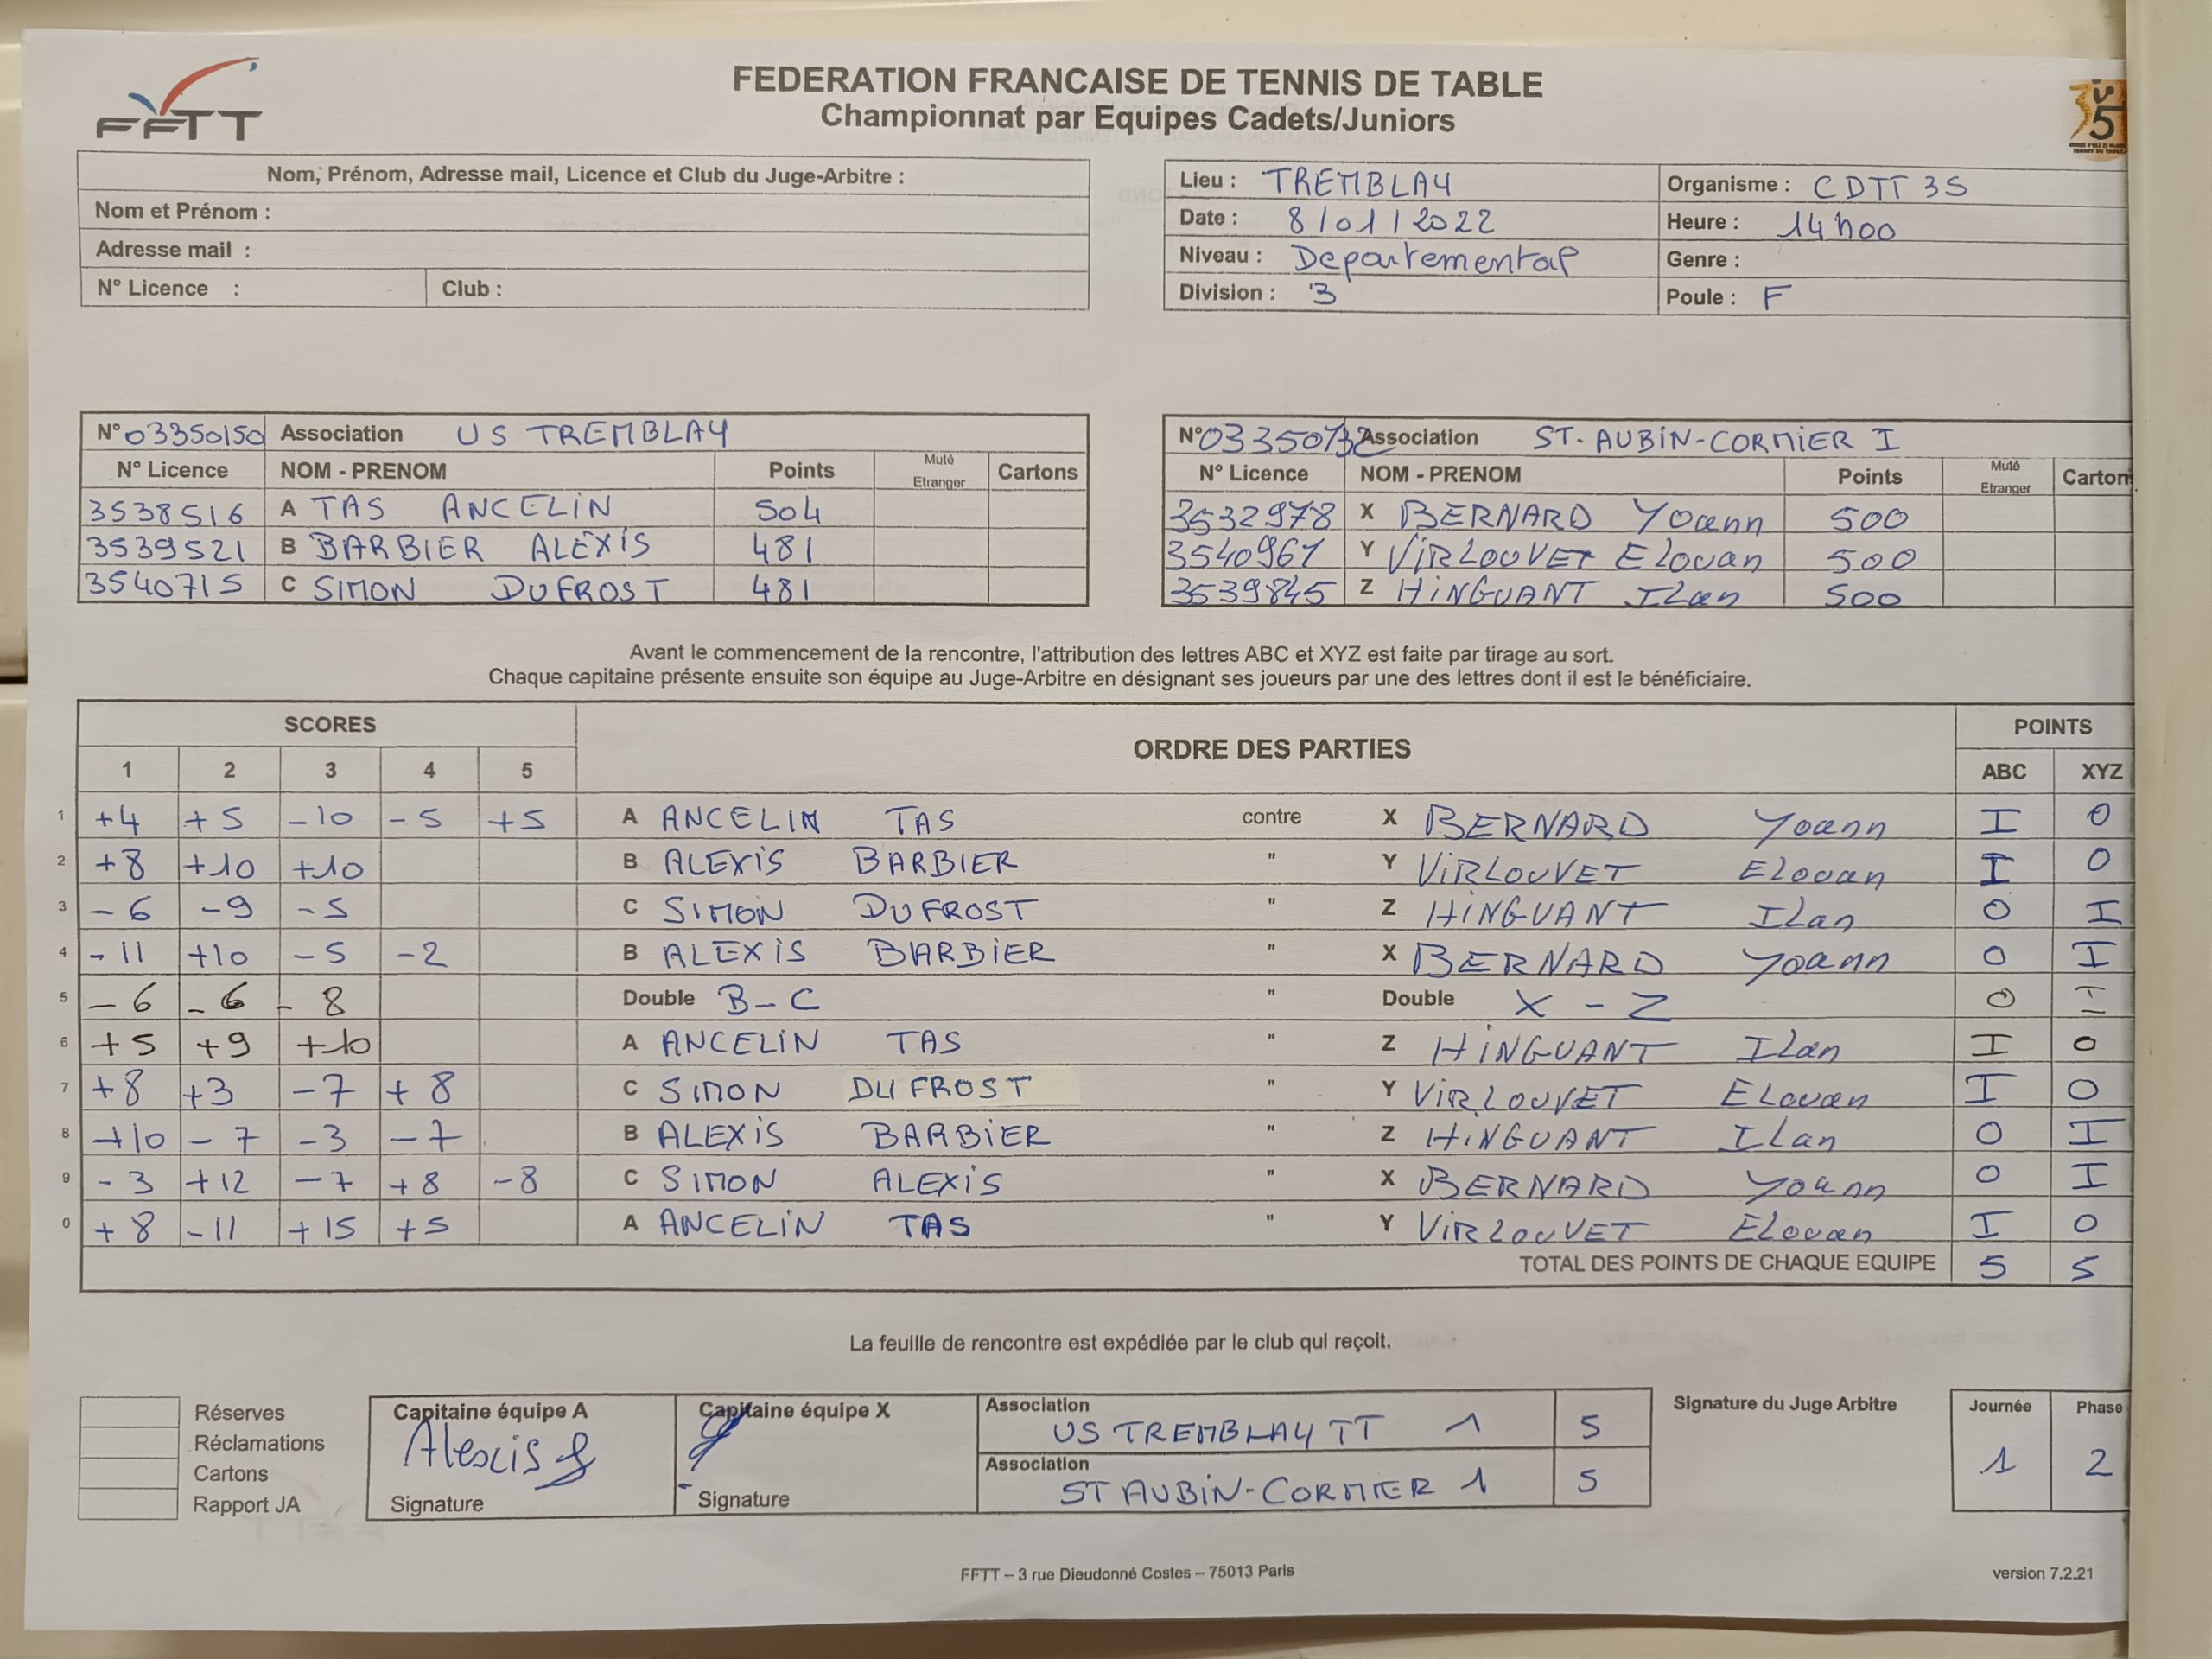 FFTT
FEDERATION FRANCAISE DE TENNIS DE TABLE
Championnat par Equipes Cadets/Juniors
35
Nom, Prénom, Adresse mail, Licence et Club du Juge-Arbitre :
Nom et Prénom :
Adresse mail :
N° Licence : Club :
Lieu : TREMBLAY Organisme : CDTT 35
Date : 8/01/2022 Heure : 14h00
Niveau : Departemental Genre :
Division : 3 Poule : F
N° 03350150 Association US TREMBLAY
N° Licence NOM - PRENOM Points Muté Etranger Cartons
3538516 A TAS ANCELIN 504
3539521 B BARBIER ALEXIS 481
3540715 C SIMON DUFROST 481
N° 03350732 Association ST-AUBIN-CORMIER I
N° Licence NOM - PRENOM Points Muté Etranger Carton
3532978 X BERNARD Yoann 500
3540961 Y VIRLOUVET Elouan 500
3539845 Z HINGUANT Ilan 500
Avant le commencement de la rencontre, l'attribution des lettres ABC et XYZ est faite par tirage au sort.
Chaque capitaine présente ensuite son équipe au Juge-Arbitre en désignant ses joueurs par une des lettres dont il est le bénéficiaire.
SCORES ORDRE DES PARTIES POINTS
1 2 3 4 5 ABC XYZ
1 +4 +5 -10 -5 +5 A ANCELIN TAS contre X BERNARD Yoann I 0
2 +8 +10 +10 B ALEXIS BARBIER " Y VIRLOUVET Elouan I 0
3 -6 -9 -5 C SIMON DUFROST " Z HINGUANT Ilan 0 I
4 -11 +10 -5 -2 B ALEXIS BARBIER " X BERNARD Yoann 0 I
5 -6 -6 -8 Double B-C " Double X - Z 0 I
6 +5 +9 +10 A ANCELIN TAS " Z HINGUANT Ilan I 0
7 +8 +3 -7 +8 C SIMON DUFROST " Y VIRLOUVET Elouan I 0
8 +10 -7 -3 -7 B ALEXIS BARBIER " Z HINGUANT Ilan 0 I
9 -3 +12 -7 +8 -8 C SIMON ALEXIS " X BERNARD Yoann 0 I
0 +8 -11 +15 +5 A ANCELIN TAS " Y VIRLOUVET Elouan I 0
TOTAL DES POINTS DE CHAQUE EQUIPE 5 5
La feuille de rencontre est expédiée par le club qui reçoit.
Réserves
Réclamations
Cartons
Rapport JA
Capitaine équipe A
Alexis
Signature
Capitaine équipe X
Signature
Association
US TREMBLAY TT 1 5
Association
ST AUBIN-CORMIER 1 5
Signature du Juge Arbitre
Journée Phase
1 2
FFTT – 3 rue Dieudonné Costes – 75013 Paris
version 7.2.21